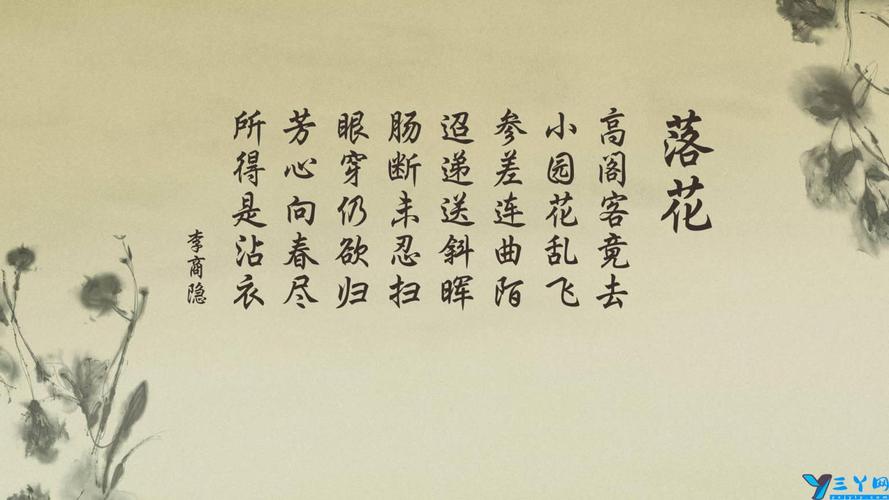 落花
高阁客竟去
小园花乱飞
参差连曲陌
迢递送斜晖
肠断未忍扫
眼穿仍欲归
芳心向春尽
所得是沾衣
李商隐
三丫网